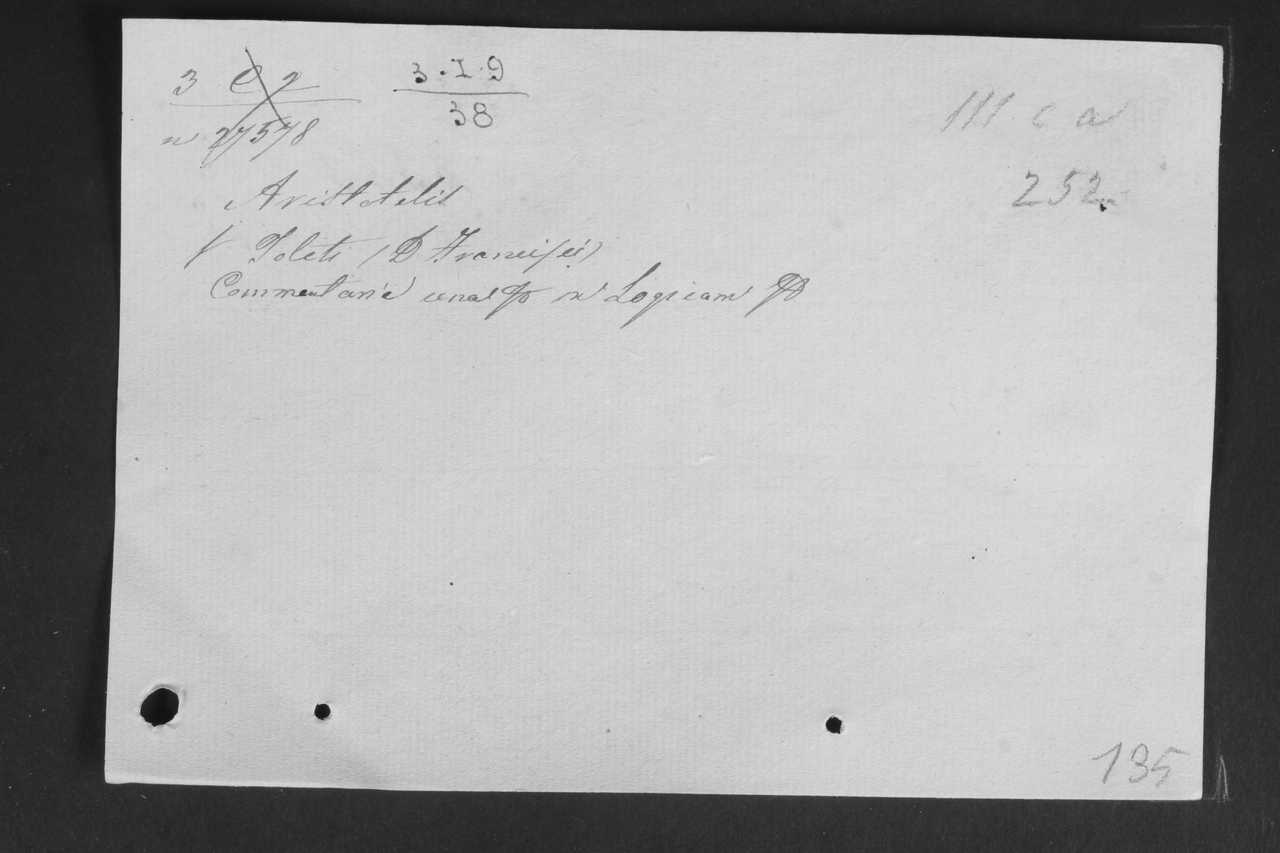 3 C 2
n 27578
3·I·9
38
III c a
252
Aristotelis
V Toleti (D Francisci)
Commentaria una in Logicam
135